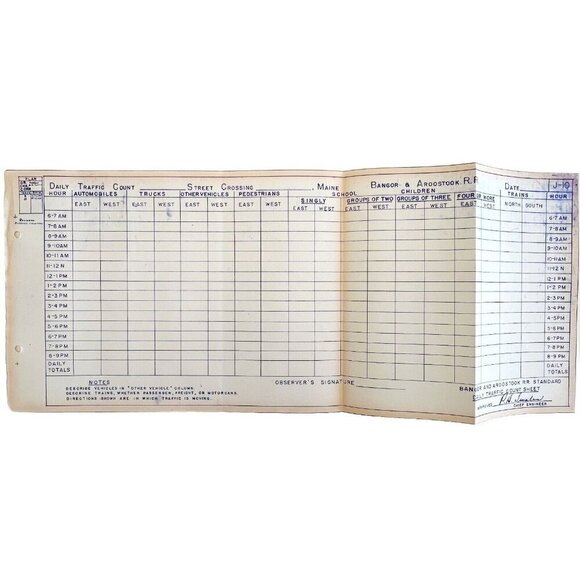 PLAN
DAILY TRAFFIC COUNT STREET CROSSING , MAINE BANGOR & AROOSTOOK R.R. DATE J-10
HOUR AUTOMOBILES TRUCKS OTHER VEHICLES PEDESTRIANS SCHOOL CHILDREN TRAINS HOUR
SINGLY GROUPS OF TWO GROUPS OF THREE FOUR OR MORE
EAST WEST EAST WEST EAST WEST EAST WEST EAST WEST EAST WEST EAST WEST EAST WEST NORTH SOUTH
6-7 AM 6-7 AM
7-8 AM 7-8 AM
8-9 AM 8-9 AM
9-10 AM 9-10 AM
10-11 AM 10-11 AM
11-12 N 11-12 N
12-1 PM 12-1 PM
1-2 PM 1-2 PM
2-3 PM 2-3 PM
3-4 PM 3-4 PM
4-5 PM 4-5 PM
5-6 PM 5-6 PM
6-7 PM 6-7 PM
7-8 PM 7-8 PM
8-9 PM 8-9 PM
DAILY TOTALS DAILY TOTALS
NOTES
DESCRIBE VEHICLES IN "OTHER VEHICLE" COLUMN.
DESCRIBE TRAINS, WHETHER PASSENGER, FREIGHT, OR MOTORCARS.
DIRECTIONS SHOWN ARE IN WHICH TRAFFIC IS MOVING.
OBSERVER'S SIGNATURE
BANGOR AND AROOSTOOK R.R. STANDARD
DAILY TRAFFIC COUNT SHEET
APPROVED
CHIEF ENGINEER